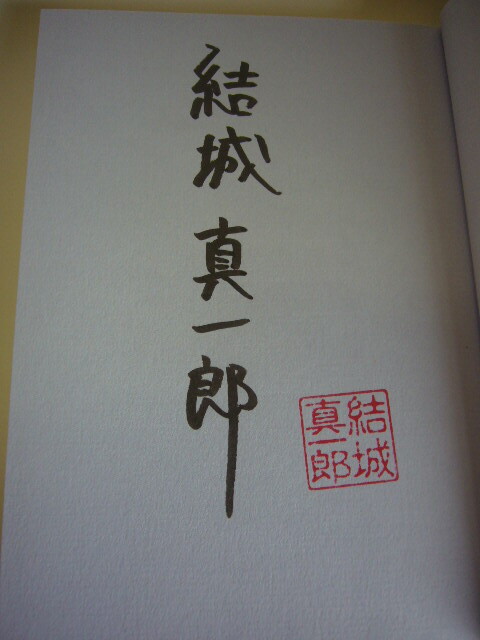 結城 真一郎
結城
真一郎